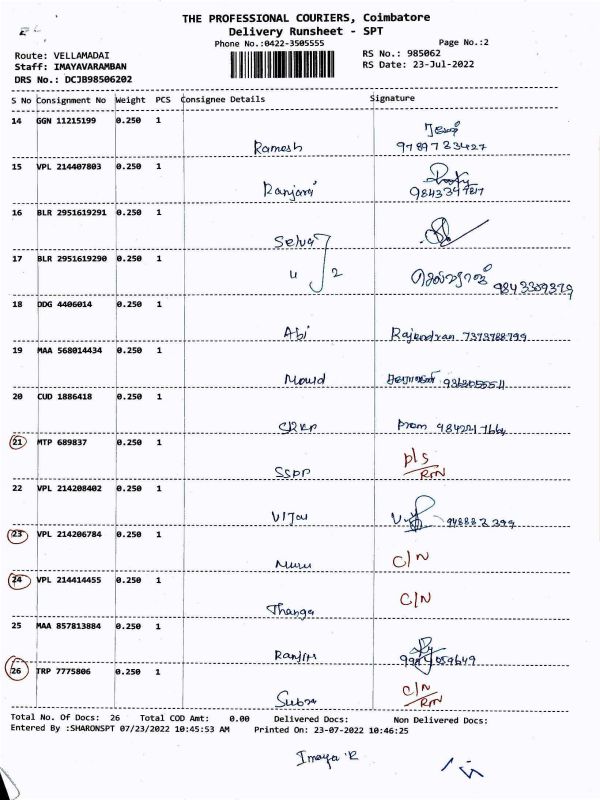 THE PROFESSIONAL COURIERS, Coimbatore
Delivery Runsheet - SPT
Phone No.:0422-3505555
Page No.:2
Route: VELLAMADAI
Staff: IMAYAVARAMBAN
DRS No.: DCJB98506202
RS No.: 985062
RS Date: 23-Jul-2022
S No Consignment No Weight PCS Consignee Details Signature
14 GGN 11215199 0.250 1
Ramesh 9789783427
15 VPL 214407803 0.250 1
Ranjani
16 BLR 2951619291 0.250 1
Selva
17 BLR 2951619290 0.250 1
2 9843359379
18 DDG 4406014 0.250 1
Abi Rajendran 7373788799
19 MAA 568014434 0.250 1
20 CUD 1886418 0.250 1
Prem
21 MTP 689837 0.250 1
P/S
SSPP RTN
22 VPL 214208402 0.250 1
23 VPL 214206784 0.250 1
C/N
24 VPL 214414455 0.250 1
Thanga C/N
25 MAA 857813884 0.250 1
Ranjith
26 TRP 7775806 0.250 1
C/N
Subra RTN
Total No. Of Docs: 26 Total COD Amt: 0.00 Delivered Docs: Non Delivered Docs:
Entered By :SHARONSPT 07/23/2022 10:45:53 AM Printed On: 23-07-2022 10:46:25
Imaya R